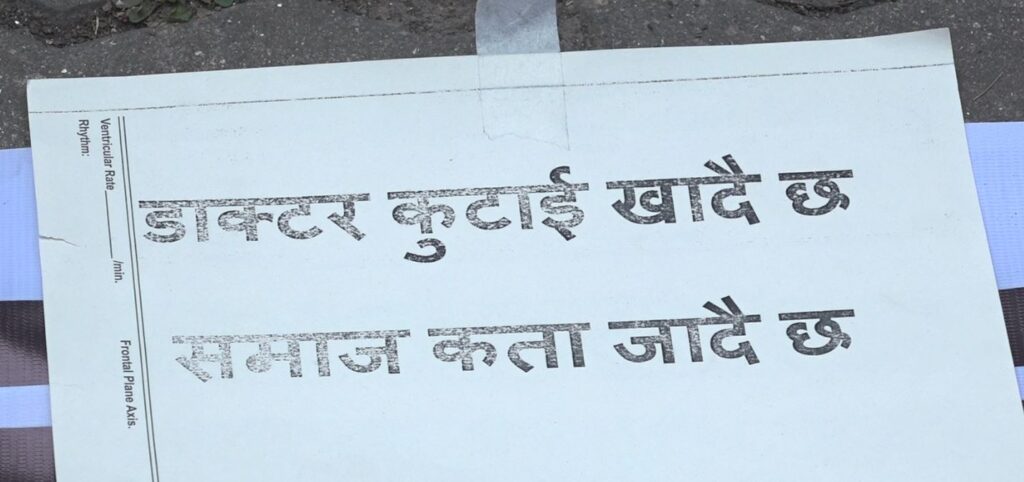 डाक्टर कुटाई खादै छ
समाज कता जादै छ
Rhythm:
Ventricular Rate________/min.
Frontal Plane Axis.